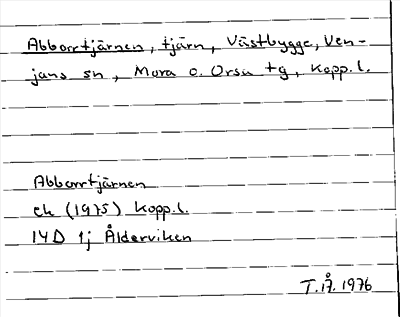 Abborrtjärnen, tjärn, Västbygge, Ven-
jans sn, Mora o. Orsa tg, Kopp.l.
Abborrtjärnen
ek (1975) Kopp.l.
14D 1j Ålderviken
T.Å. 1976